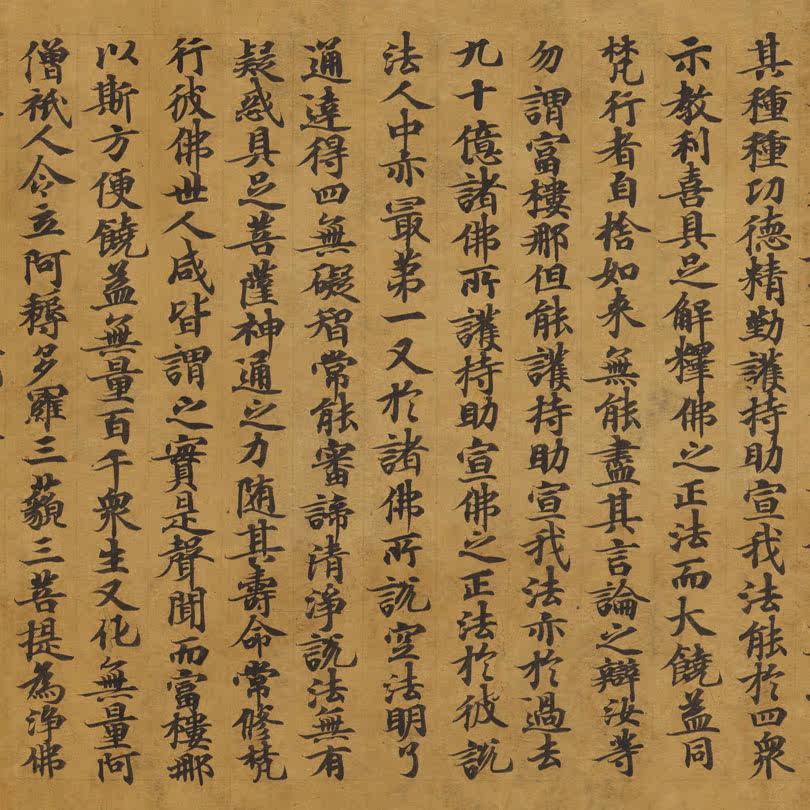 其種種功德精勤護持助宣我法能於四衆
示教利喜具足解釋佛之正法而大饒益同
梵行者自捨如来無能盡其言論之辯汝等
勿謂富樓那但能護持助宣我法亦於過去
九十億諸佛所護持助宣佛之正法於彼說
法人中亦最第一又於諸佛所說空法明了
通達得四無礙智常能審諦清淨說法無有
疑惑具足菩薩神通之力随其壽命常修梵
行彼佛世人咸皆謂之實是聲聞而富樓那
以斯方便饒益無量百千衆生又化無量阿
僧祇人令立阿耨多羅三藐三菩提為淨佛